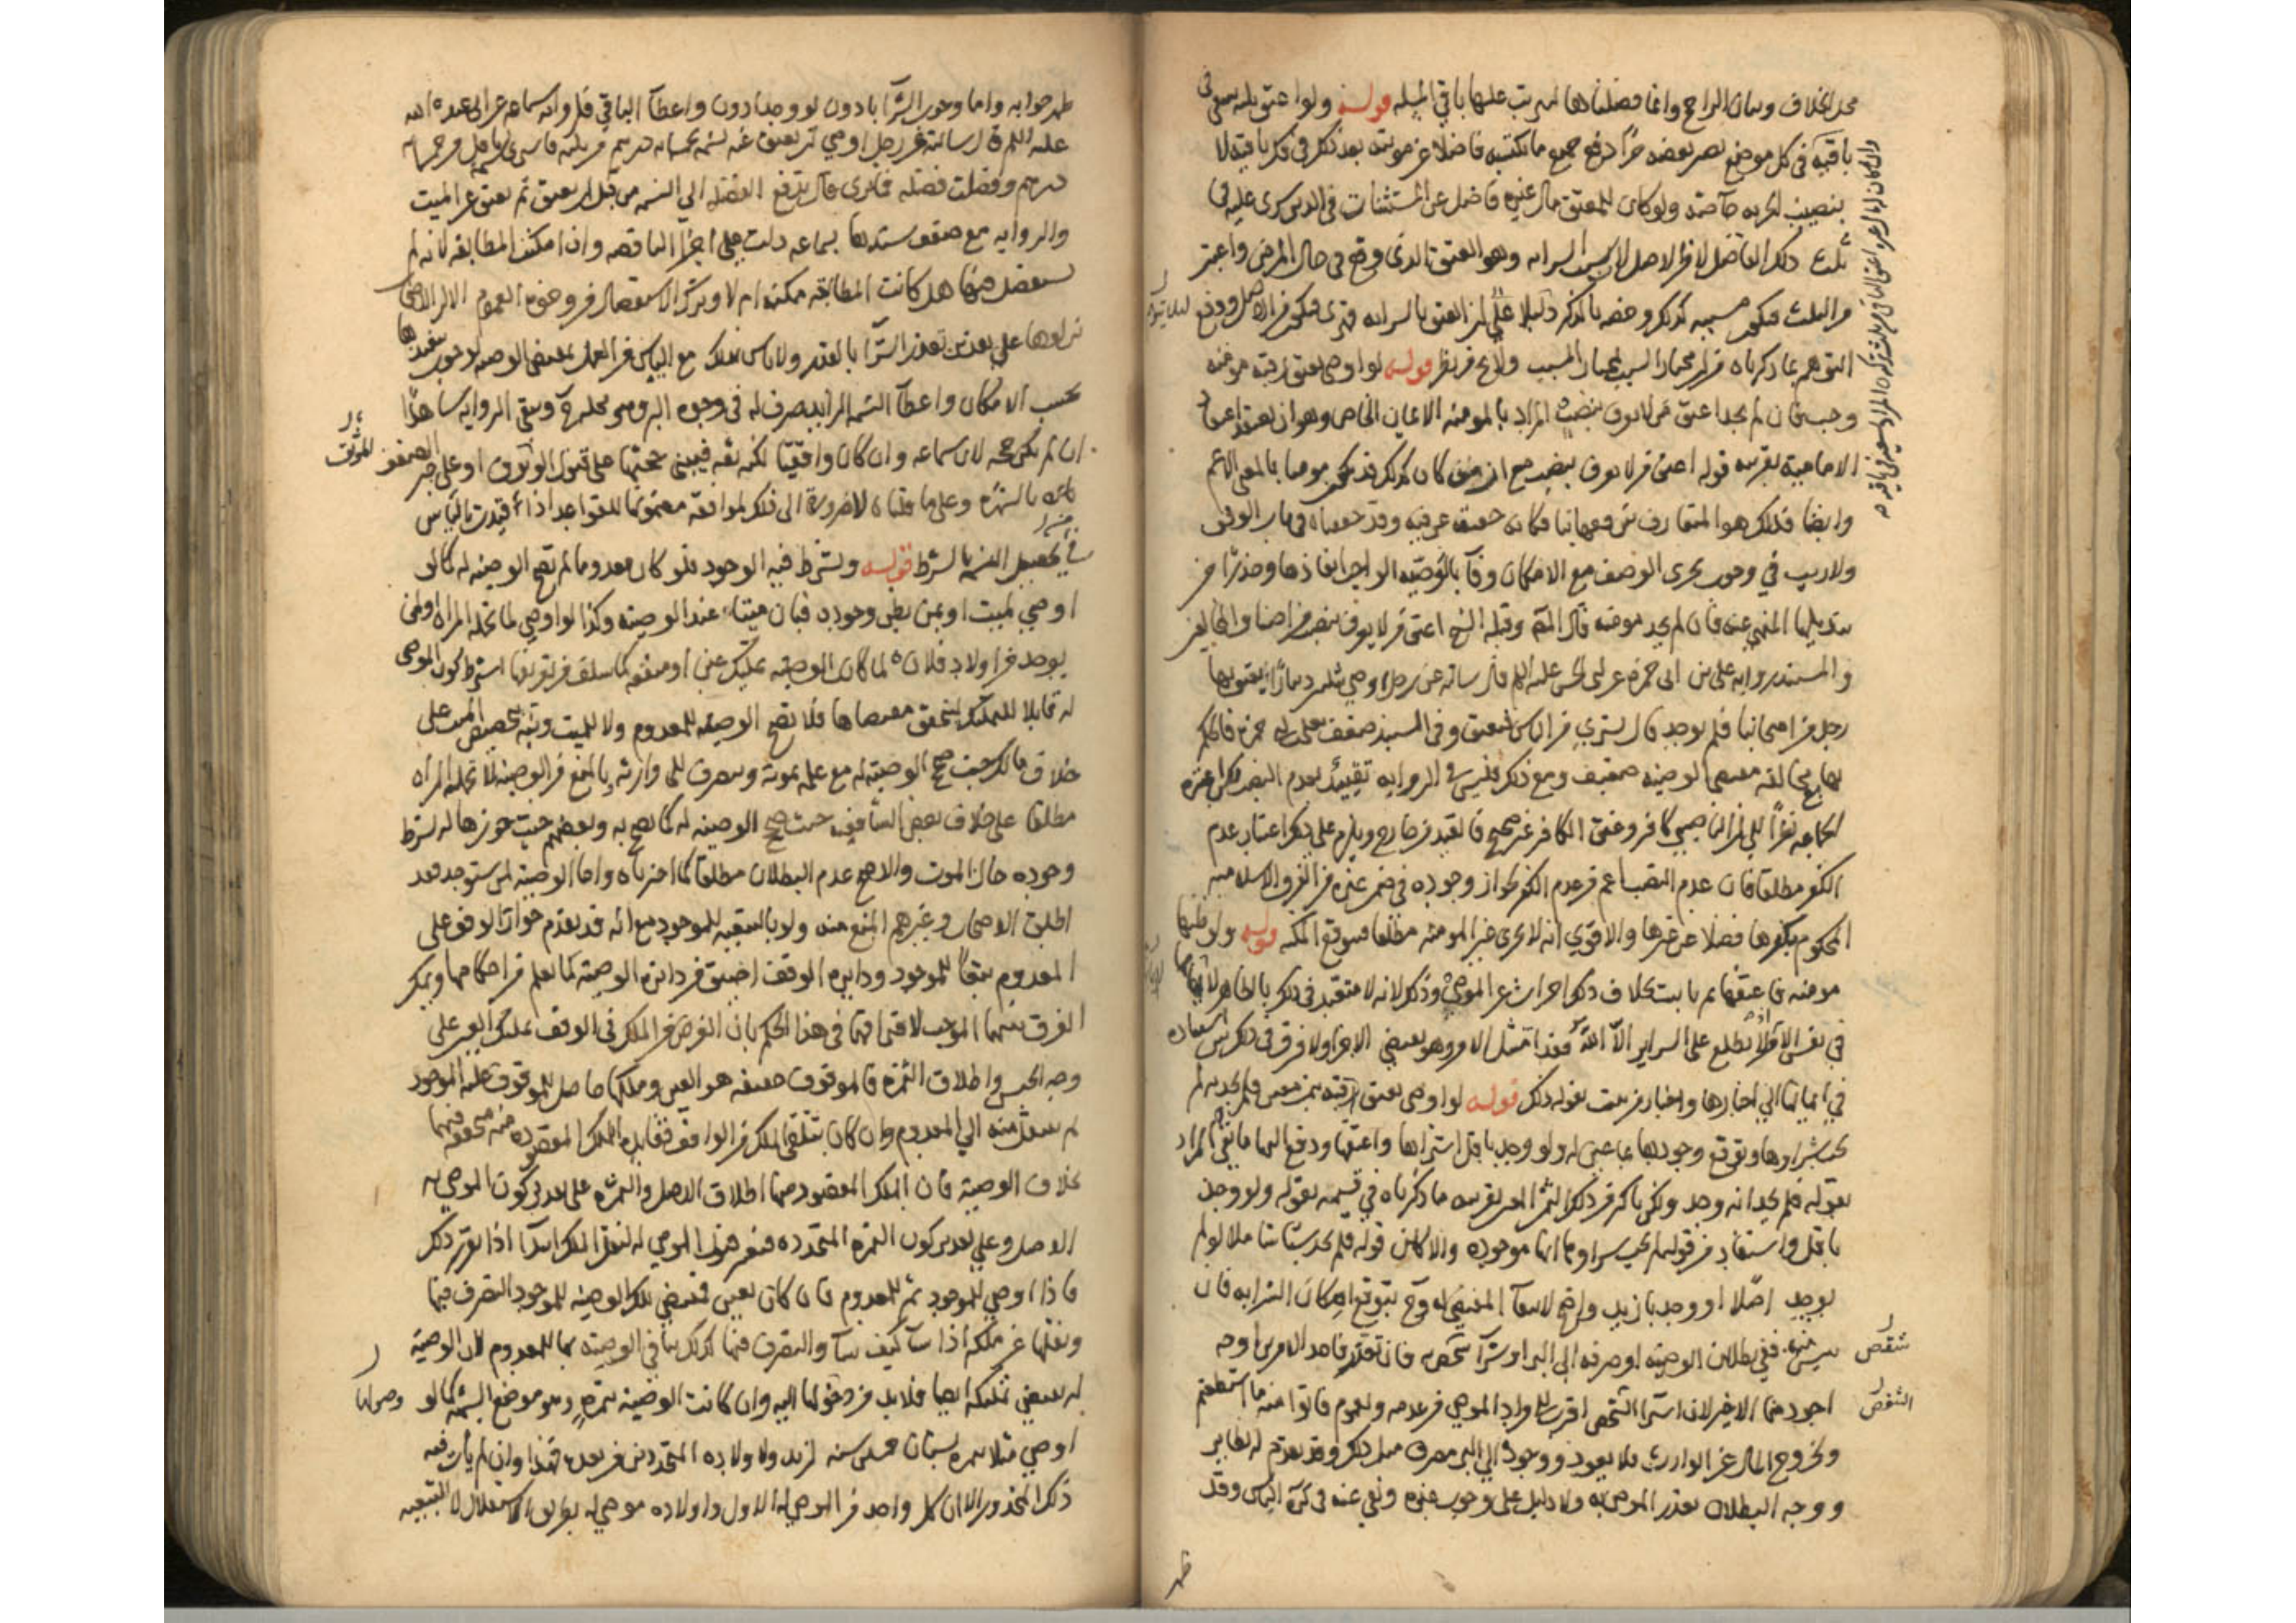 محل الخلاف وبيان الراجح وانما فصلناها ليترتب عليها باقي المسئلة قوله ولو اعتق ثلثه سعى في
باقيه في كل موضع يصير بعضه حرا دفع جميع ما يكتسبه فاضلا عن مؤنته بعد ذلك في فك رقبته لا
بنصيب الحرية خاصة ولو كان للمعتق مال غيره فاضل عن المستثنيات في الدين سرى عليه في
ثلث ذلك الفاضل لا من الاصل لان سبب السراية وهو العتق الذي وقع في حال المرض واعتبر
من الثلث فيكون مسببه كذلك وخصه بالذكر دليلا على ان العتق بالسراية قهري فيكون من الاصل ودفع
التوهم بما ذكرناه من ان مختار السبب مختار المسبب ولا يخ من نظر قوله لو اوصى بعتق رقبة مومنة
وجب فان لم يجد اعتق من لا يعرف بنصب المراد بالمومنة الايمان الخاص وهو ان يعتقد اعتقاد
الامامية بقرينة قوله اعتق من لا يعرف بنصب مع ان من كان كذلك قد يكون مومنا بالمعنى الاعم
وايضا فذلك هو المتعارف بين فقهائنا فكان حقيقة عرفية وقد حققناه في باب الوقف
ولا ريب في وجوب تحري الوصف مع الامكان وفاء بالوصية الواجب انفاذها وحذرا من
تبديلها المنهي عنه فان لم يجد مومنة قال المص وقبله الشيخ اعتق من لا يعرف بنصب من اصناف المخالفين
والمستند رواية علي بن ابي حمزة عن ابي الحسن عليه السلم قال سالته عن رجل اوصى بثلثين دينارا يعتق بها
رجل من اصحابنا فلم يوجد قال يشتري من الناس فيعتق وفي السند ضعف بعلي بن ابي حمزة فالحكم
بها مع مخالفة مقتضى الوصية ضعيف ومع ذلك فليس في الرواية تقييد بعدم النصب لكن اعتبره
الجماعة نظرا الى ان الناصبي كافر وعتق الكافر غير صحيح فالقيد من خارج ويلزم على هذا اعتبار عدم
الكفر مطلقا فان عدم النصب اعم من عدم الكفر لجواز وجوده في ضمن غيره من الفرق الاسلامية
المحكوم بكفرها فضلا عن غيرها والاقوى انه لا يجزي غير المومنة مطلقا فيتوقع المكنة قوله ولو ظنها
مومنة فاعتقها ثم بانت بخلاف ذلك اجزات عن الموصي وذلك لانه لا متعبد في ذلك بالظاهر لا بما
في نفس الامر اذ لا يطلع على السراير الا الله فقد امتثل الامر وهو يقتضي الاجزا ولا فرق في ذلك بين استناده
في ايمانها الى اخبارها واخبار من يثبت بقوله ذلك قوله لو اوصى بعتق رقبة بثمن معين فلم يجد به لم
يجب شراوها وتوقع وجودها بما عين له ولو وجد باقل اشتراها واعتقها ودفع اليها ما بقي المراد
بقوله فلم يجد انه وجد ولكن باكثر من ذلك الثمن المعين بقرينة ما ذكرناه في قسيمه بقوله ولو وجد
باقل واستفاد من قولهم لم يجب شراوها انها موجودة والا كان قوله فلم يجد شيئا شاملا لو لم
يوجد اصلا او وجد بازيد وارجح لانتفاء المقتضي له وح يتوقع امكان الشرا به فان
يئس منه ففي بطلان الوصية او صرفه الى البر او شراء شقص به فان تعذر فاحد الامرين اوجه
اجودها الاخير لان اشتراء الشقص اقرب الى مراد الموصي من عدمه ولعموم فاتوا منه ما استطعتم
ولخروج المال عن الوارث فلا يعود ووجوه البر مصرف مثل ذلك وقد تقدم له نظاير
ووجه البطلان تعذر الموصى به ولا دليل على وجوب غيره ونفى عنه في كرة الباس وقد
ظهر
وان كان له مال غيره اعتق الباقي من ثلث تركته المراد بسعيه في باقيه
شقص
الشقص
ظهر جوابه واما وجوب الشراء بادون لو وجد بادون واعطاء الباقي فلرواية سماعة عن ابي عبد الله
عليه السلم قال سالته عن رجل اوصى ان يعتق عنه نسمة بخمسمائة درهم من ثلثه فاشترى نسمة باقل من خمسمائة
درهم وفضلت فضلة فما ترى قال تدفع الفضلة الى النسمة من قبل ان تعتق ثم تعتق عن الميت
والرواية مع ضعف سندها بسماعة دلت على اجزاء الناقصة وان امكنت المطابقة لانه لم
يستفصل فيها هل كانت المطابقة ممكنة ام لا وترك الاستفصال من وجوه العموم الا ان الاصحاب
نزلوها على تعذر الشراء بالقدر ولا باس بذلك مع الياس من العمل بمقتضى الوصية لوجوب تنفيذها
بحسب الامكان واعطاء النسمة الزايد صرف له في وجوه البر وهي محله وتبقى الرواية شاهدا
ان لم تكن حجة لان سماعة وان كان واقفيا لكنه ثقة فينبني حجتها على قبول الموثق او على جبر الضعف
بالشهرة وعلى ما قلناه لا ضرورة الى ذلك لموافقة مضمونها للقواعد اذا قيدت بالياس
في تحصيل النسمة بالشرط قوله ويشترط فيه الوجود فلو كان معدوما لم تصح الوصية له كما لو
اوصى لميت او لمن يظن وجوده فبان ميتا عند الوصية وكذا لو اوصى لما تحمله المراة او لمن
يوجد من اولاد فلان لما كانت الوصية تمليك عين او منفعة كما سلف من تعريفها اشترط كون الموصى
له قابلا للتملك ليتحقق مقتضاها فلا تصح الوصية للمعدوم ولا للميت ونبه بتخصيص الميت على
خلاف مالك حيث صح الوصية له مع علمه بموته وتصرف الى وارثه بالمنع من الوصية لما تحمله المراة
مطلقا على خلاف بعض الشافعية حيث صح الوصية له كما تصح به وبعضهم حيث جوزها له بشرط
وجوده حال الموت والاصح عدم البطلان مطلقا كما اخترناه واما الوصية لمن سيوجد فقد
اطلق الاصحاب وغيرهم المنع منه ولو بالتبعية للموجود مع انه قد تقدم جواز الوقف على
المعدوم تبعا للموجود ودايرة الوقف اضيق من دايرة الوصية كما يعلم من احكامهما ويمكن
الفرق بينهما الموجب لافتراقهما في هذا الحكم بان الغرض من الملك في الوقف تمليك العين على
وجه الحبس واطلاق الثمرة فالموقوف حقيقة هو العين وملكها حاصل للموقوف عليه الموجود
ثم ينتقل منه الى المعدوم وان كان يتلقى الملك من الواقف فقابلية الملك المقصودة منه متحققة فيهما
بخلاف الوصية فان الملك المقصود منها اطلاق الاصل والثمرة على تقدير كون الموصى به
الاصل وعلى تقدير كون الثمرة المتجددة فنفس هذا الموصى له لنقل الملك ابتداء اذا تقرر ذلك
فاذا اوصى للموجود ثم للمعدوم فان كان بعين فمقتضى تلك الوصية للموجود التصرف فيها
ونقلها عن ملكه اذا شاء كيف شاء والتصرف فيها كذلك ينافي الوصية بها للمعدوم لان الوصية
له تقتضي تملكه ايضا فلا بد من دخولها اليه وان كانت الوصية بثمرة وهو موضع الشبهة كما لو
اوصى مثلا بثمرة بستان خمسين سنة لزيد ولاولاده المتجددين من بعده فهذا وان لم يات فيه
ذلك المحذور الا ان كل واحد من الموصى له الاول واولاده موصى له بطريق الاستقلال لا التبعية
الموثق
وصولها